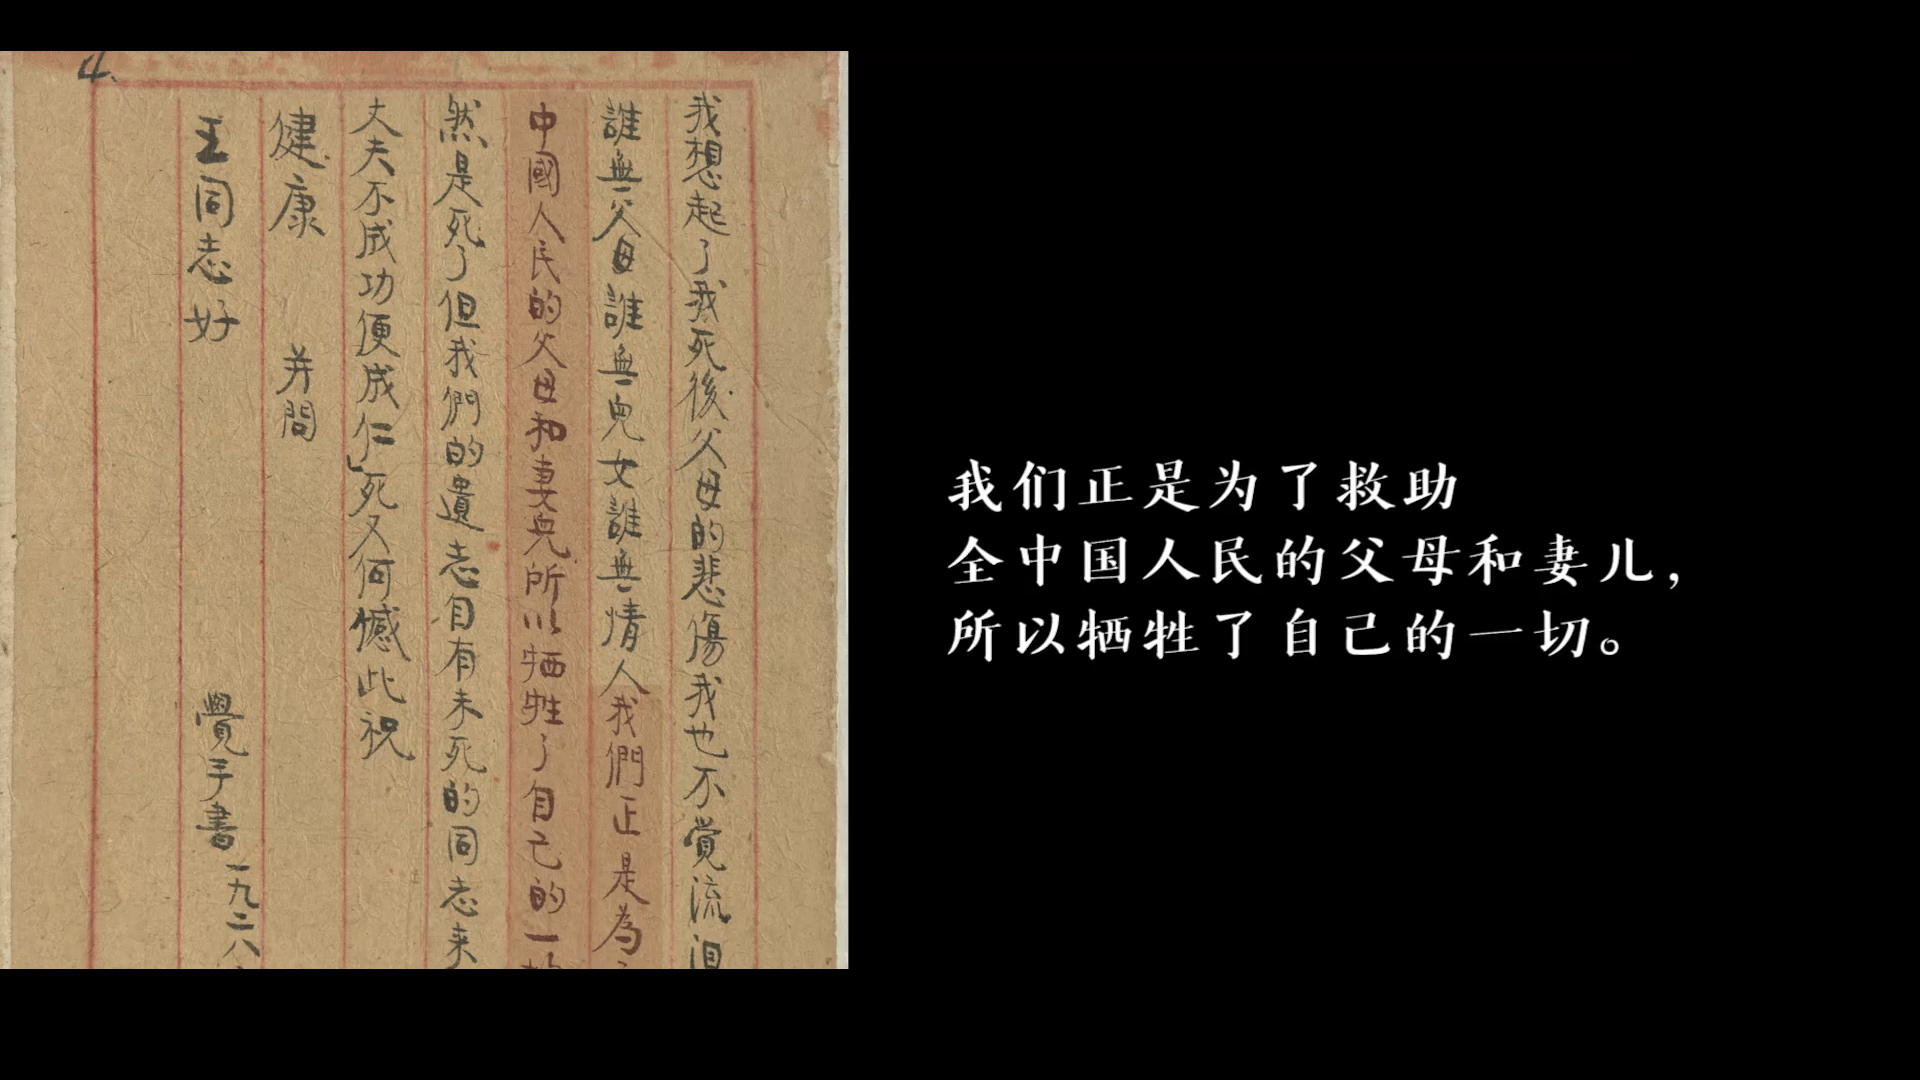 4.
我想起了我死後父母的悲傷我也不觉流泪
誰無父母誰無兒女誰無情人我們正是為
中國人民的父母和妻兒所以牺牲了自己的一
然是死了但我們的遺志自有未死的同志来
丈夫不成功便成仁」死又何憾此祝
健康 并問
王同志好
覺手書
一九二八
我们正是为了救助
全中国人民的父母和妻儿，
所以牺牲了自己的一切。